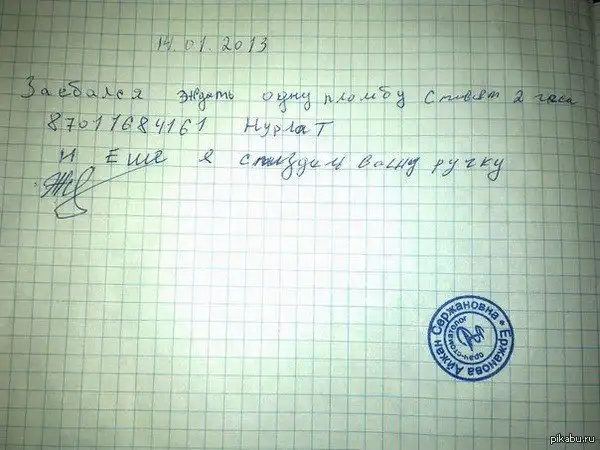 14.01.2013
Заебался ждать одну пломбу ставят 2 часа
87011684161 Нурлат
И Еше я спиздил вашу ручку
Ержанова Айжан Сержановна
врач-стоматолог
pikabu.ru